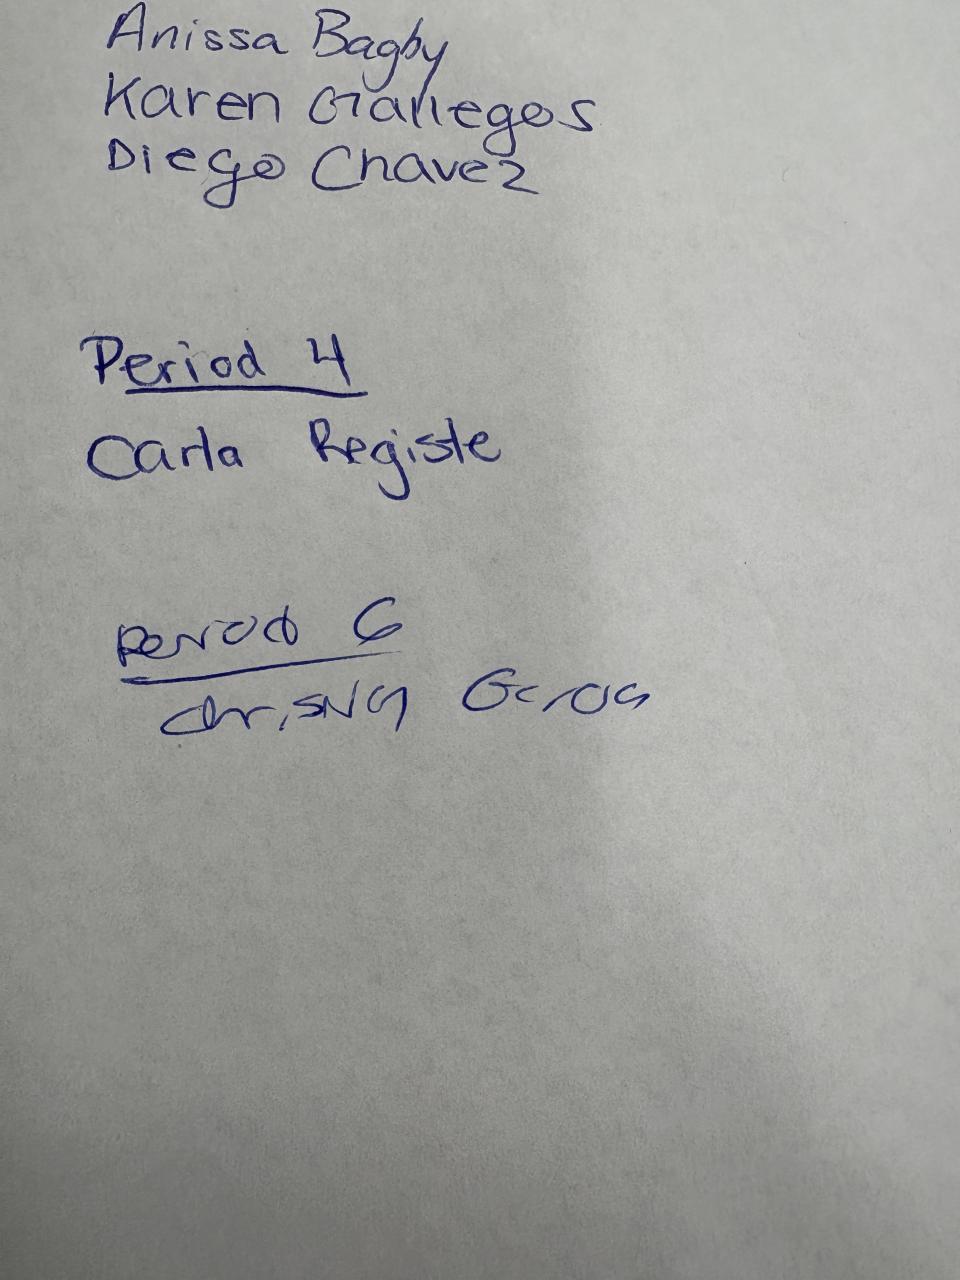 Anissa Bagby
Karen Gallegos
Diego Chavez
Period 4
Carla Registe
Period 6